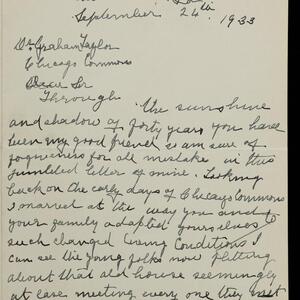 September 24th 1933
Dr. Graham Taylor
Chicago Commons
Dear Sir
Through the sunshine
and shadow of forty years you have
been my good friend, so am sure of
forgiveness for all mistake in this
jumbled letter of mine. Looking
back on the early days of Chicago Commons
I marvel at the way you and
your family adapted yourselves to
such changed living conditions I
can see the young folks now flitting
about that old house seemingly
at ease meeting every one they met